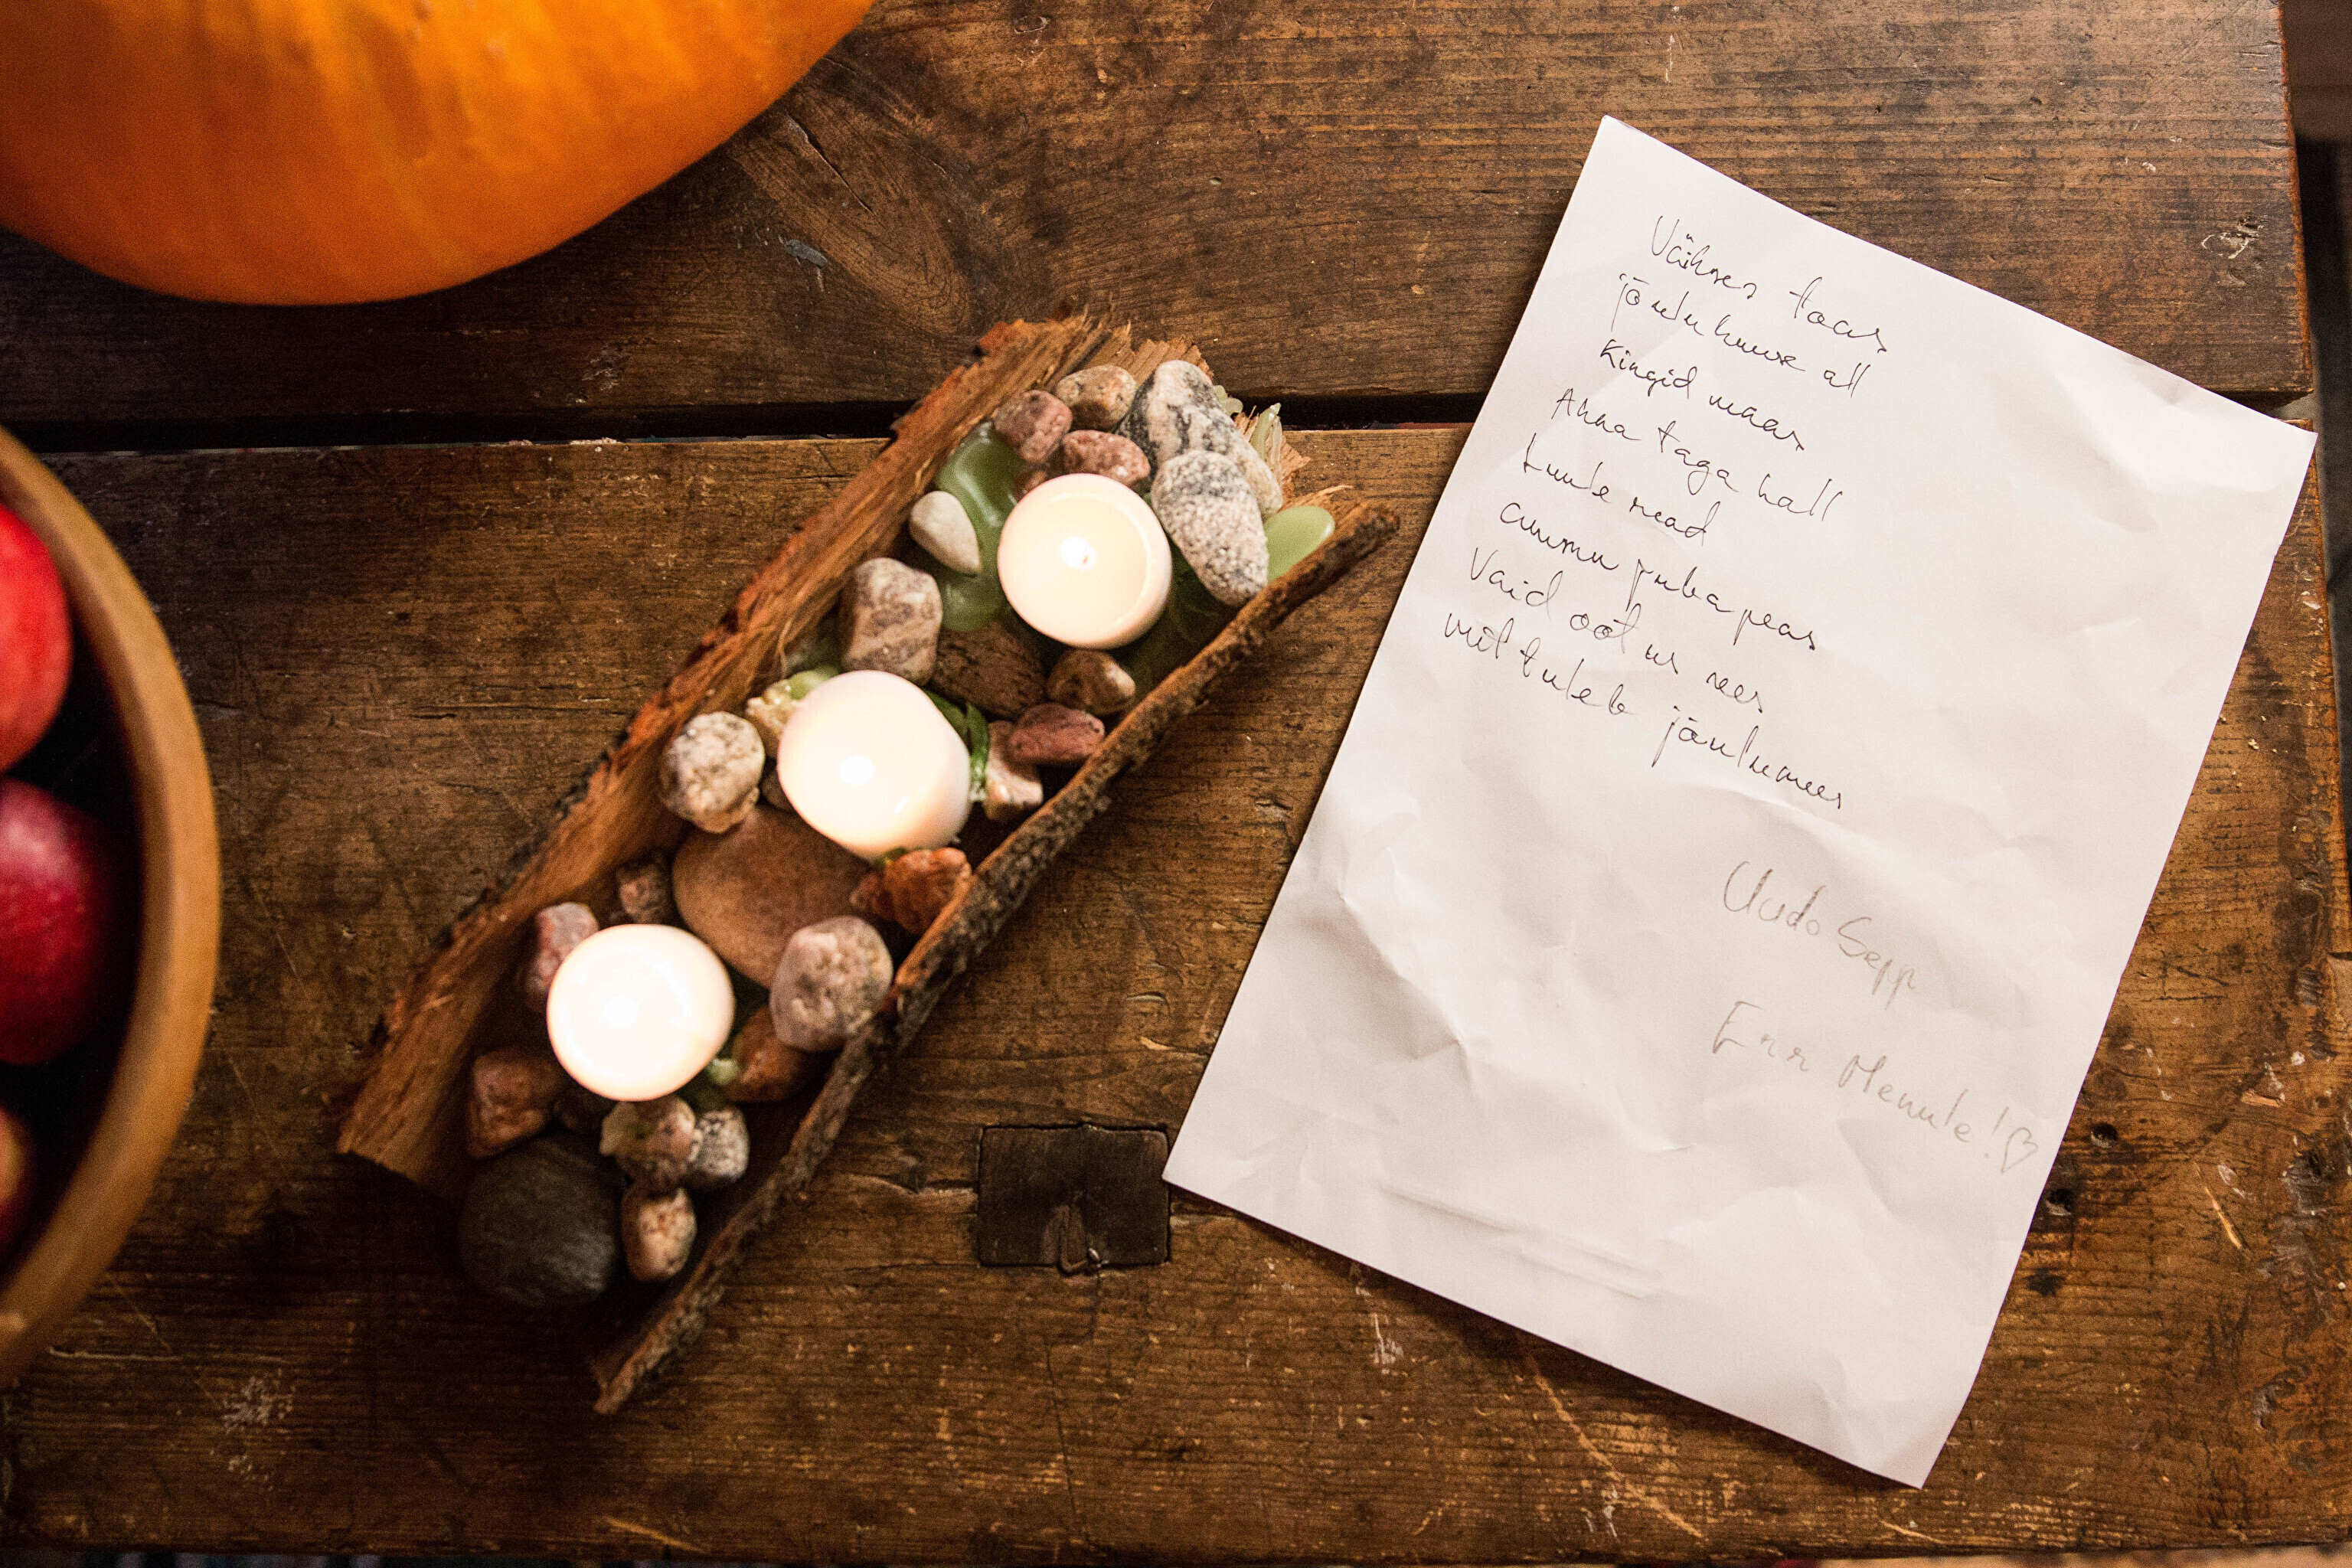 Väikses toas
jõulukuuse all
Kingid maas
Anna taga hall
Luule read
ammu juba peas
Vaid ootus sees
mil tuleb jõulumees
Uudo Sepp
Err Menule!♡